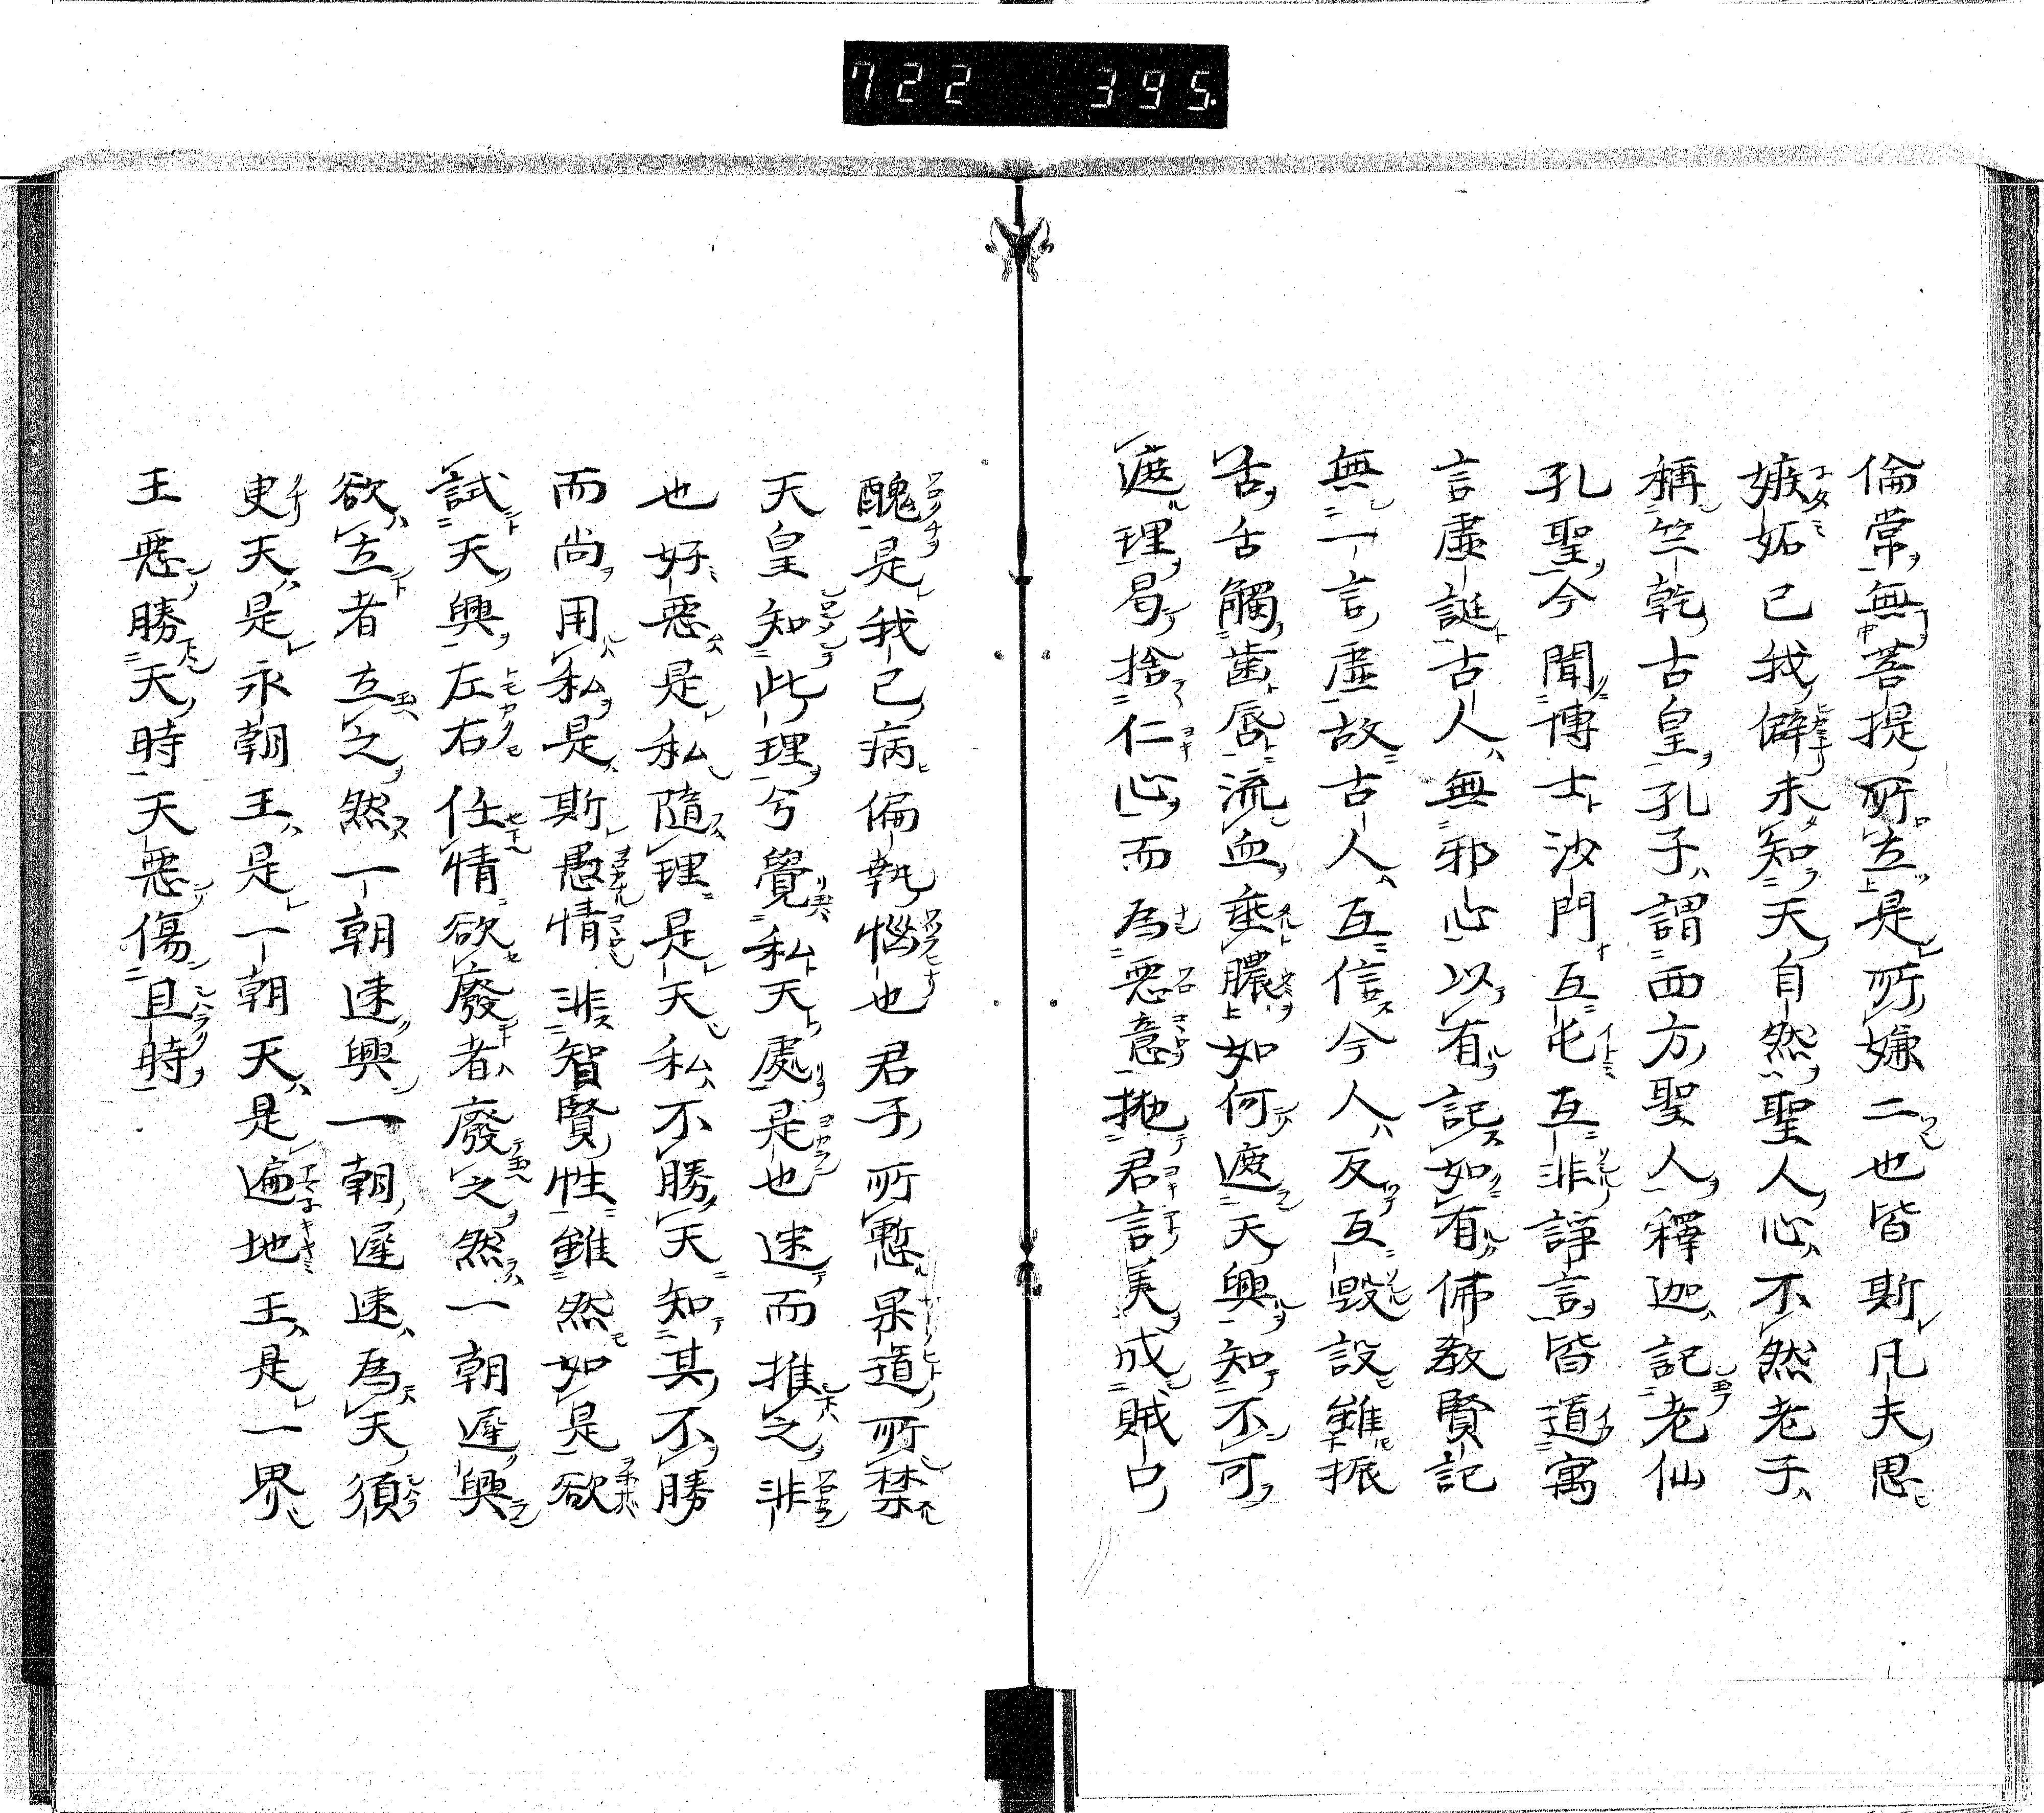 722 395
倫常無菩提所立是所嫌二也皆斯凡夫思
嫉妬己我僻未知天自然聖人心不然老子
稱竺乾古皇孔子謂西方聖人釋迦記老仙
孔聖今聞博士沙門互毛互非諍言皆道寓
言虛誕古人無邪心以有記如有佛教賢記
無一言虛故古人互信今人反互毀設雖振
舌舌觸齒唇流血垂膿如何遮天興知不可
遮理曷捨仁心而為惡意拋君言美成賊口
醜是我己病偏執惱也君子所慙果道所禁
天皇知此理兮覺私天處是也速而推之非
也好惡是私隨理是天私不勝天知其不勝
而尚用私是斯愚情非智賢性雖然如是欲
試天興左右任情欲廢者廢之然一朝遲興
欲立者立之然一朝速興一朝遲速為天須
吏天是永朝王是一朝天是遍地王是一界
王惡勝天時天惡傷且時